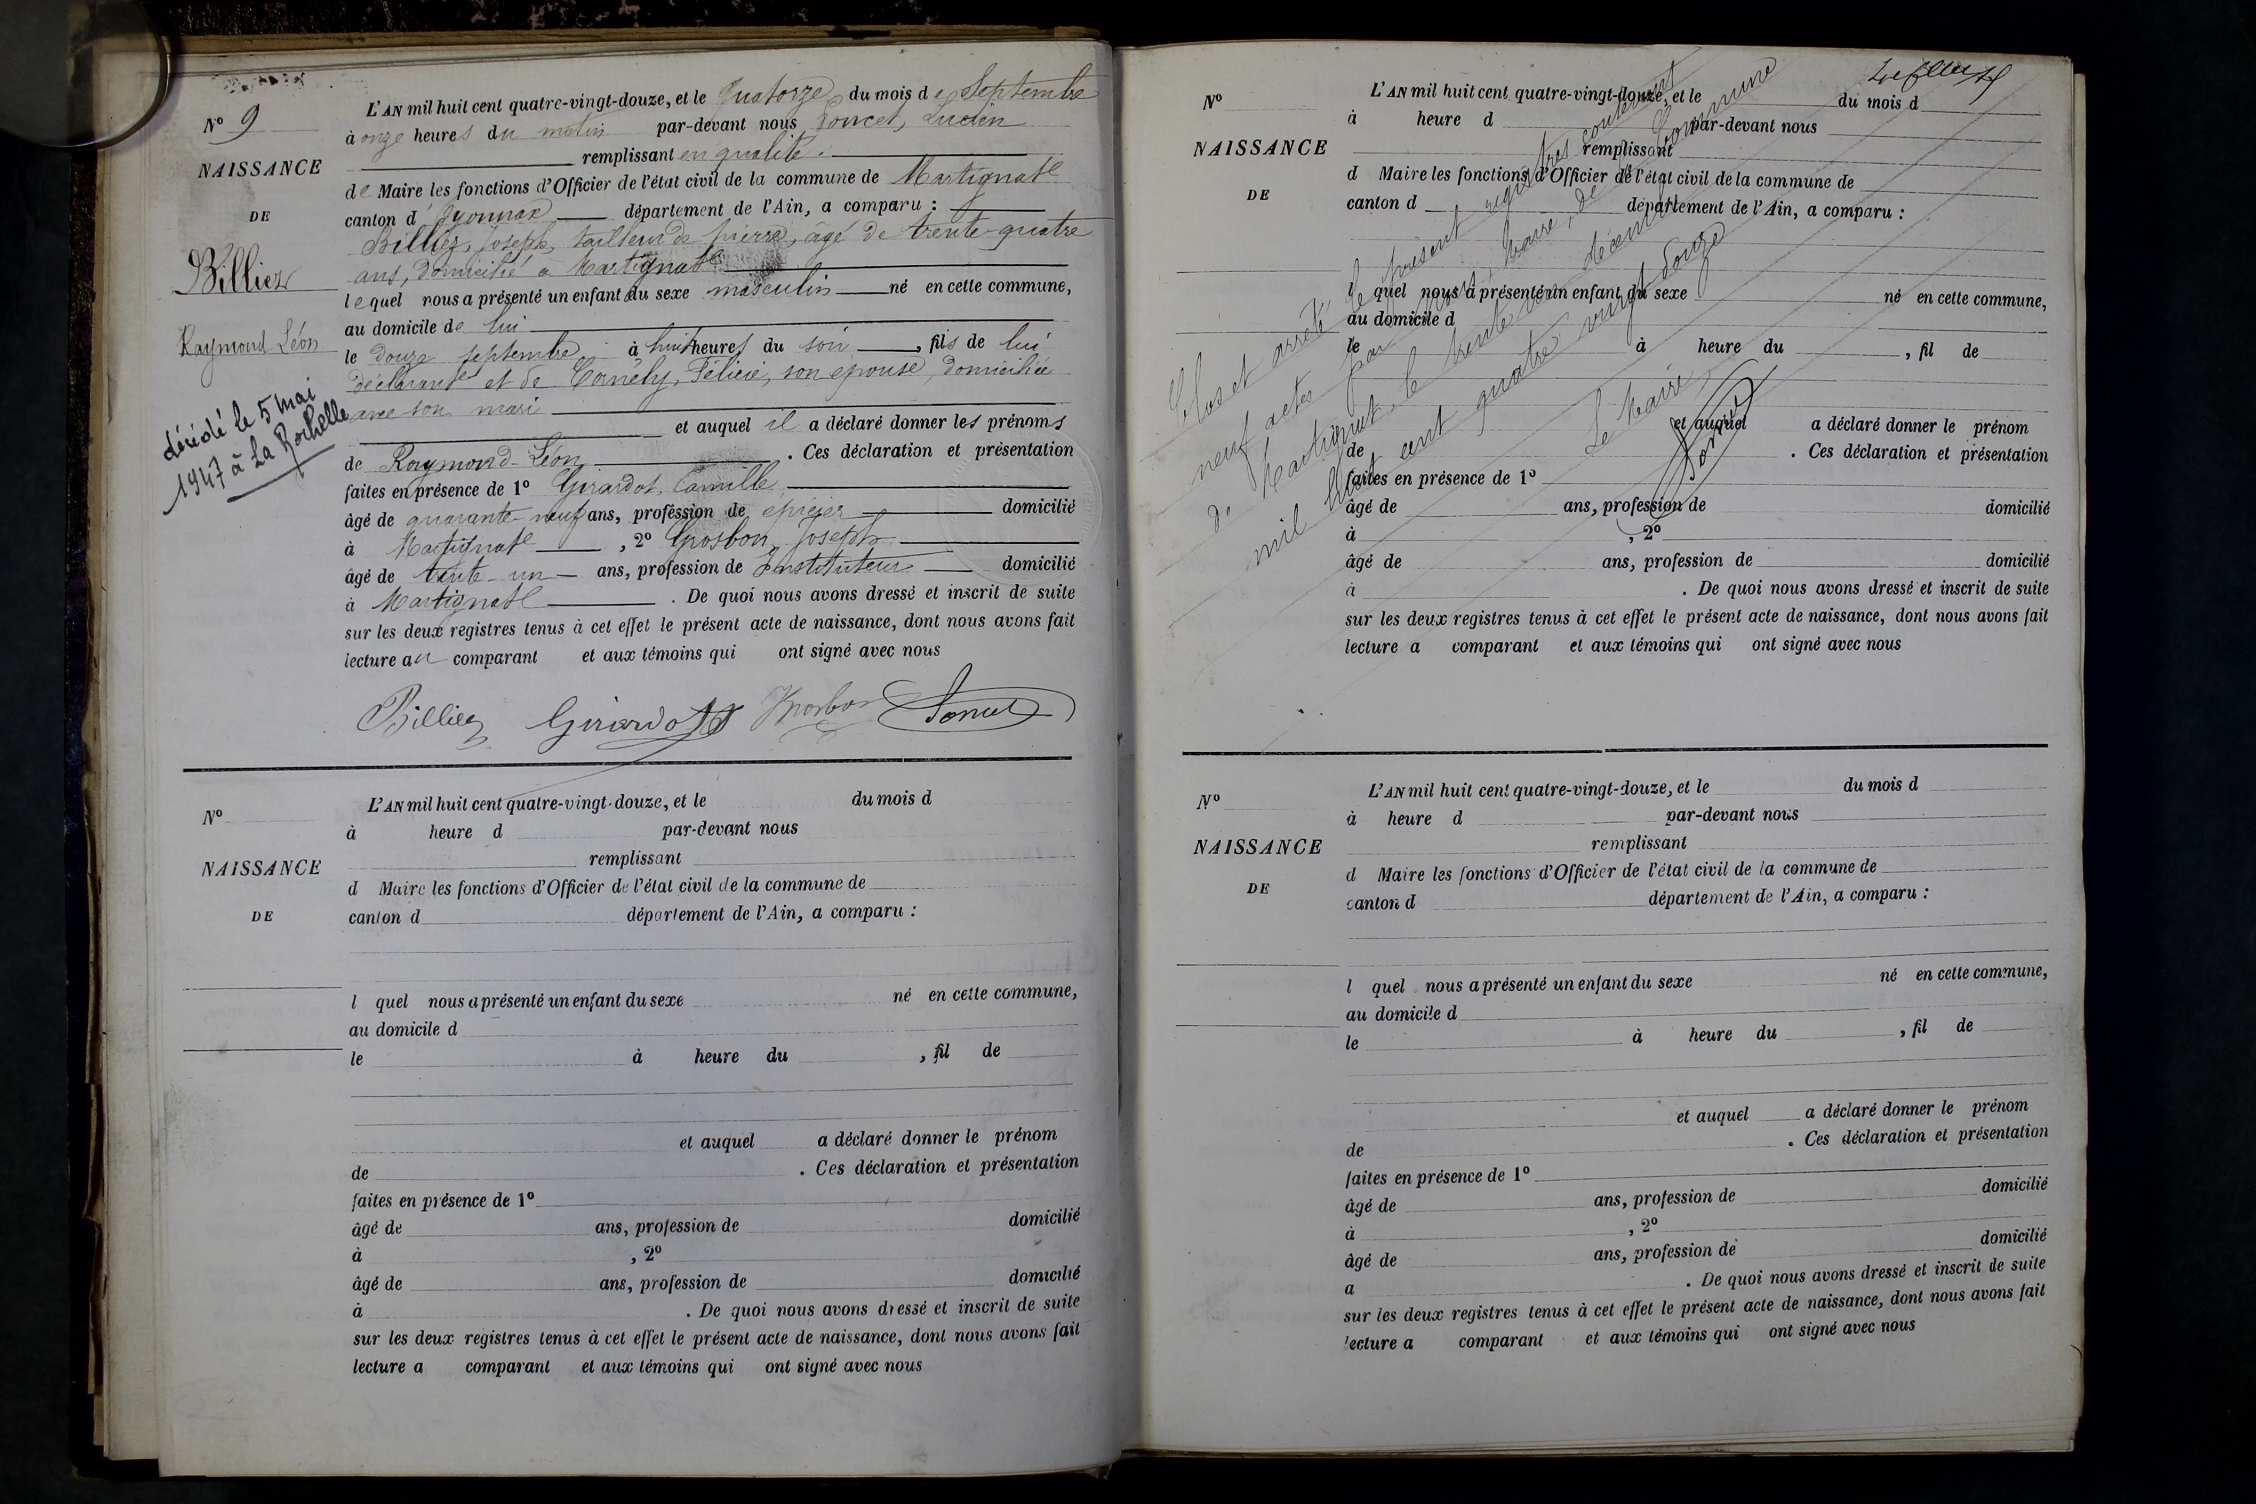 N° 9
NAISSANCE
DE
Billiez
Raymond Léon
décédé le 5 mai
1947 à La Rochelle
L'AN mil huit cent quatre-vingt-douze, et le quatorze du mois de Septembre
à onze heures du matin par-devant nous Poncet, Lucien
remplissant en qualité
de Maire les fonctions d'Officier de l'état civil de la commune de Martignat
canton d'Oyonnax département de l'Ain, a comparu :
Billiez, Joseph, tailleur de pierre, âgé de trente-quatre
ans, domicilié à Martignat
lequel nous a présenté un enfant du sexe masculin né en cette commune,
au domicile de lui
le douze septembre à huit heures du soir, fils de lui
déclarant et de Cornély, Félicie, son épouse, domiciliée
avec son mari
et auquel il a déclaré donner les prénoms
de Raymond-Léon. Ces déclaration et présentation
faites en présence de 1° Girardot, Camille
âgé de quarante-neuf ans, profession de épicier domicilié
à Martignat, 2° Grosbon, Joseph
âgé de trente-un ans, profession de Instituteur domicilié
à Martignat. De quoi nous avons dressé et inscrit de suite
sur les deux registres tenus à cet effet le présent acte de naissance, dont nous avons fait
lecture au comparant et aux témoins qui ont signé avec nous
Billiez Girardot Grosbon Poncet
N°
NAISSANCE
DE
L'AN mil huit cent quatre-vingt-douze, et le du mois d
à heure d par-devant nous
remplissant
d Maire les fonctions d'Officier de l'état civil de la commune de
canton d département de l'Ain, a comparu :
l quel nous a présenté un enfant du sexe né en cette commune,
au domicile d
le à heure du , fil de
et auquel a déclaré donner le prénom
de . Ces déclaration et présentation
faites en présence de 1°
âgé de ans, profession de domicilié
à , 2°
âgé de ans, profession de domicilié
à . De quoi nous avons dressé et inscrit de suite
sur les deux registres tenus à cet effet le présent acte de naissance, dont nous avons fait
lecture a comparant et aux témoins qui ont signé avec nous
N°
NAISSANCE
DE
L'AN mil huit cent quatre-vingt-douze, et le du mois d
à heure d par-devant nous
remplissant
d Maire les fonctions d'Officier de l'état civil de la commune de
canton d département de l'Ain, a comparu :
l quel nous a présenté un enfant du sexe né en cette commune,
au domicile d
le à heure du , fil de
et auquel a déclaré donner le prénom
de . Ces déclaration et présentation
faites en présence de 1°
âgé de ans, profession de domicilié
à , 2°
âgé de ans, profession de domicilié
à . De quoi nous avons dressé et inscrit de suite
sur les deux registres tenus à cet effet le présent acte de naissance, dont nous avons fait
lecture a comparant et aux témoins qui ont signé avec nous
Clos et arrêté le présent registres contenant
neuf actes par nous, Maire, de la Commune
de Martignat le trente un décembre
mil huit cent quatre vingt douze
Le Maire,
Poncet
N°
NAISSANCE
DE
L'AN mil huit cent quatre-vingt-douze, et le du mois d
à heure d par-devant nous
remplissant
d Maire les fonctions d'Officier de l'état civil de la commune de
canton d département de l'Ain, a comparu :
l quel nous a présenté un enfant du sexe né en cette commune,
au domicile d
le à heure du , fil de
et auquel a déclaré donner le prénom
de . Ces déclaration et présentation
faites en présence de 1°
âgé de ans, profession de domicilié
à , 2°
âgé de ans, profession de domicilié
a . De quoi nous avons dressé et inscrit de suite
sur les deux registres tenus à cet effet le présent acte de naissance, dont nous avons fait
lecture a comparant et aux témoins qui ont signé avec nous